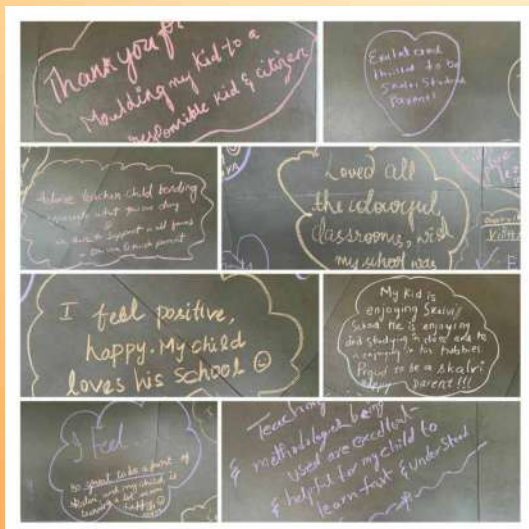 Thank you for
Moulding my Kid to a
responsible Kid & citizen
Excited and
thrilled to be
Skalvi Student
Parents
child bonding
what you are doing
support in all
parent
Loved all
the colourful
classrooms, wish
my school was
I feel positive,
happy. My child
loves his school
My Kid is
enjoying Skalvi
School. He is enjoying
and studying in class and
enjoying in his hobbies.
Proud to be a skalvi
parent!!!
I feel...
so great to be a part of
Skalvi, and my child is
learning a lot
Teaching
methodologies being
used are excellent
& helpful for my child to
learn fast & understand